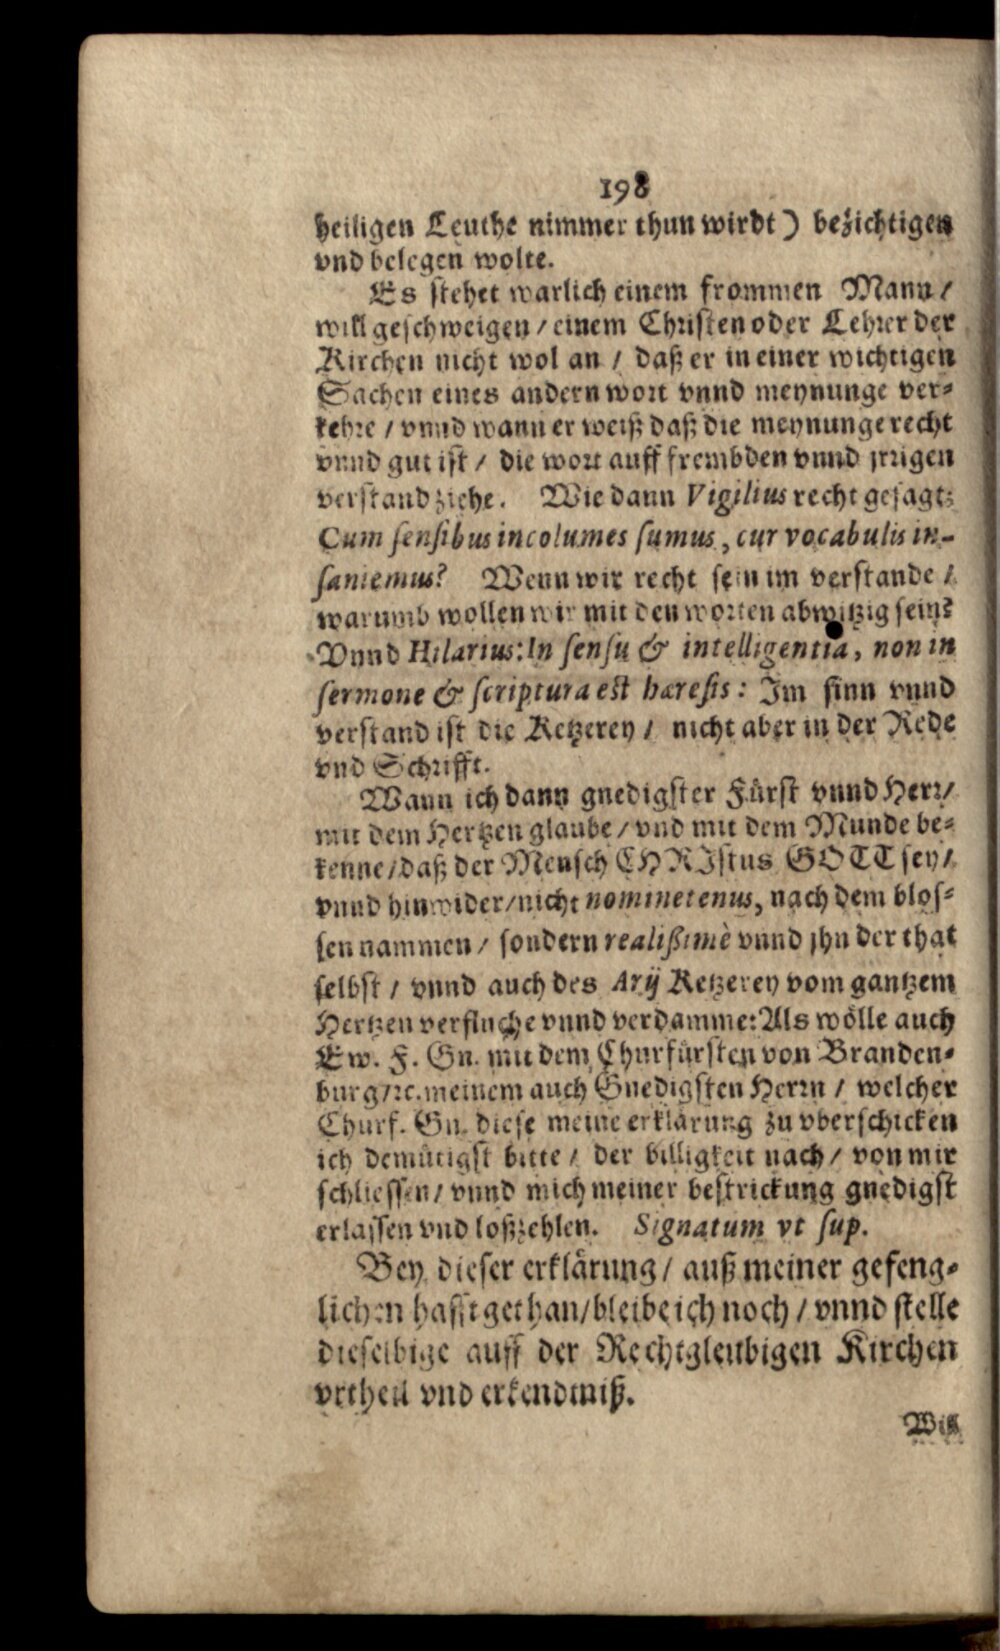 198
heiligen Leuthe nimmer thun wirdt) bezichtigen
vnd belegen wolte.
Es stehet warlich einem frommen Mann /
will geschweigen / einem Christen oder Lehrer der
Kirchen nicht wol an / daß er in einer wichtigen
Sachen eines andern wort vnnd meynunge ver⸗
kehre / vnnd wann er weiß daß die meynunge recht
vnnd gut ist / die wort auff frembden vnnd jrrigen
verstand ziehe. Wie dann Vigilius recht gesagt:
Cum sensibus incolumes sumus, cur vocabulis in-
saniemus? Wenn wir recht sein im verstande /
warumb wollen wir mit den worten abwitzig sein?
Vnnd Hilarius: In sensu & intelligentia, non in
sermone & scriptura est hæresis: Im sinn vnnd
verstand ist die Ketzerey / nicht aber in der Rede
vnd Schrifft.
Wann ich dann gnedigster Fürst vnnd Herr /
mit dem Hertzen glaube / vnd mit dem Munde be⸗
kenne / daß der Mensch CHRIstus GOTT sey /
vnnd hinwider / nicht nominetenus, nach dem blos⸗
sen nammen / sondern realißimè vnnd jhn der that
selbst / vnnd auch des Arij Ketzerey vom gantzem
Hertzen verfluche vnnd verdamme: Als wölle auch
Ew. F. Gn. mit dem Churfürsten von Branden⸗
burg / ꝛc. meinem auch Gnedigsten Herrn / welcher
Churf. Gn. diese meine erklärung zu vberschicken
ich demütigst bitte / der billigkeit nach / von mir
schliessen / vnnd mich meiner bestrickung gnedigst
erlassen vnd loßzehlen. Signatum vt sup.
Bey dieser erklärung / auß meiner gefeng⸗
lichen hafft gethan / bleibe ich noch / vnnd stelle
dieselbige auff der Rechtgleubigen Kirchen
vrtheil vnd erkendtniß.
Wil